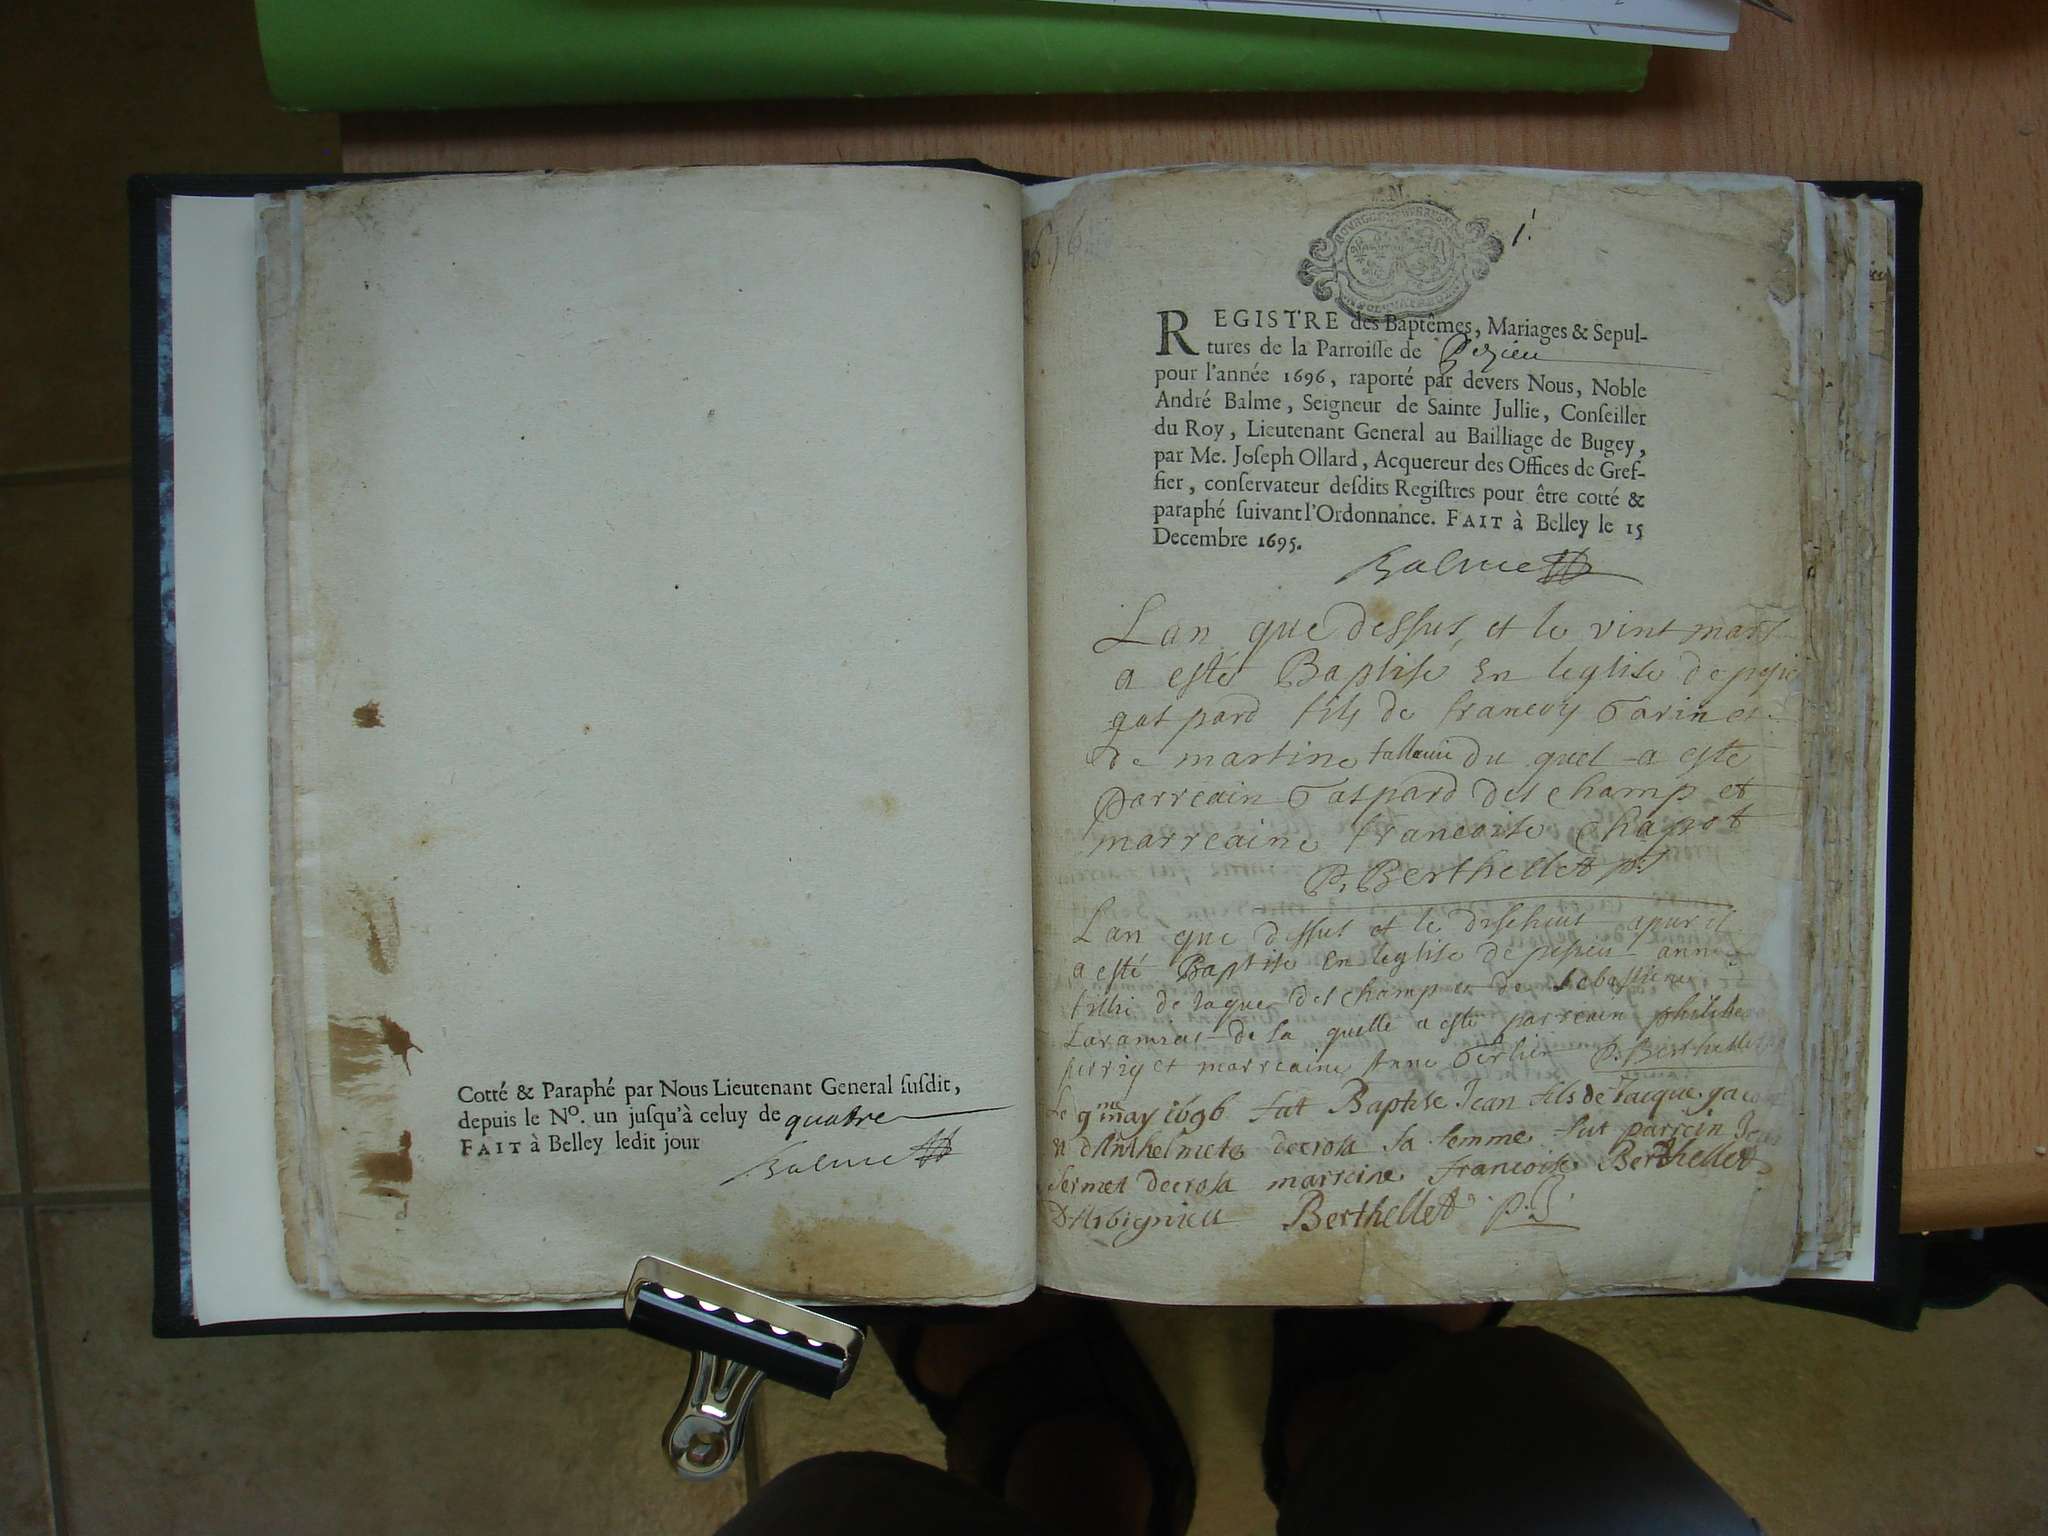 Cotté & Paraphé par Nous Lieutenant General susdit,
depuis le N°. un jusqu'à celuy de quatre
FAIT à Belley ledit jour
Balme
1.
REGISTRE des Baptêmes, Mariages & Sepul-
tures de la Parroisse de Pezieu
pour l'année 1696, raporté par devers Nous, Noble
André Balme, Seigneur de Sainte Jullie, Conseiller
du Roy, Lieutenant General au Bailliage de Bugey,
par Me. Joseph Ollard, Acquereur des Offices de Gref-
fier, conservateur desdits Registres pour être cotté &
paraphé suivant l'Ordonnance. FAIT à Belley le 15
Decembre 1695.
Balme
Lan que dessus, et le vint mars
a esté Baptise En leglise de
gaspard fils de francoy et
de martine du quel a este
parreain Gaspard deschamp et
marreaine francoise Chapot
P. Berthellet
Lan que dessus et le
a esté Baptise En leglise de anne
fillie de Jaque deschamp et de Sebastiene
de la quelle a este parreain
et marreaine Anne P. Berthellet
Le 9me may 1696 fut Baptise Jean fils de Jacque
et dAnthelmete decrosa sa femme fut parrein
decrosa marreine francoise Berthellet
D'Arbignieu Berthellet